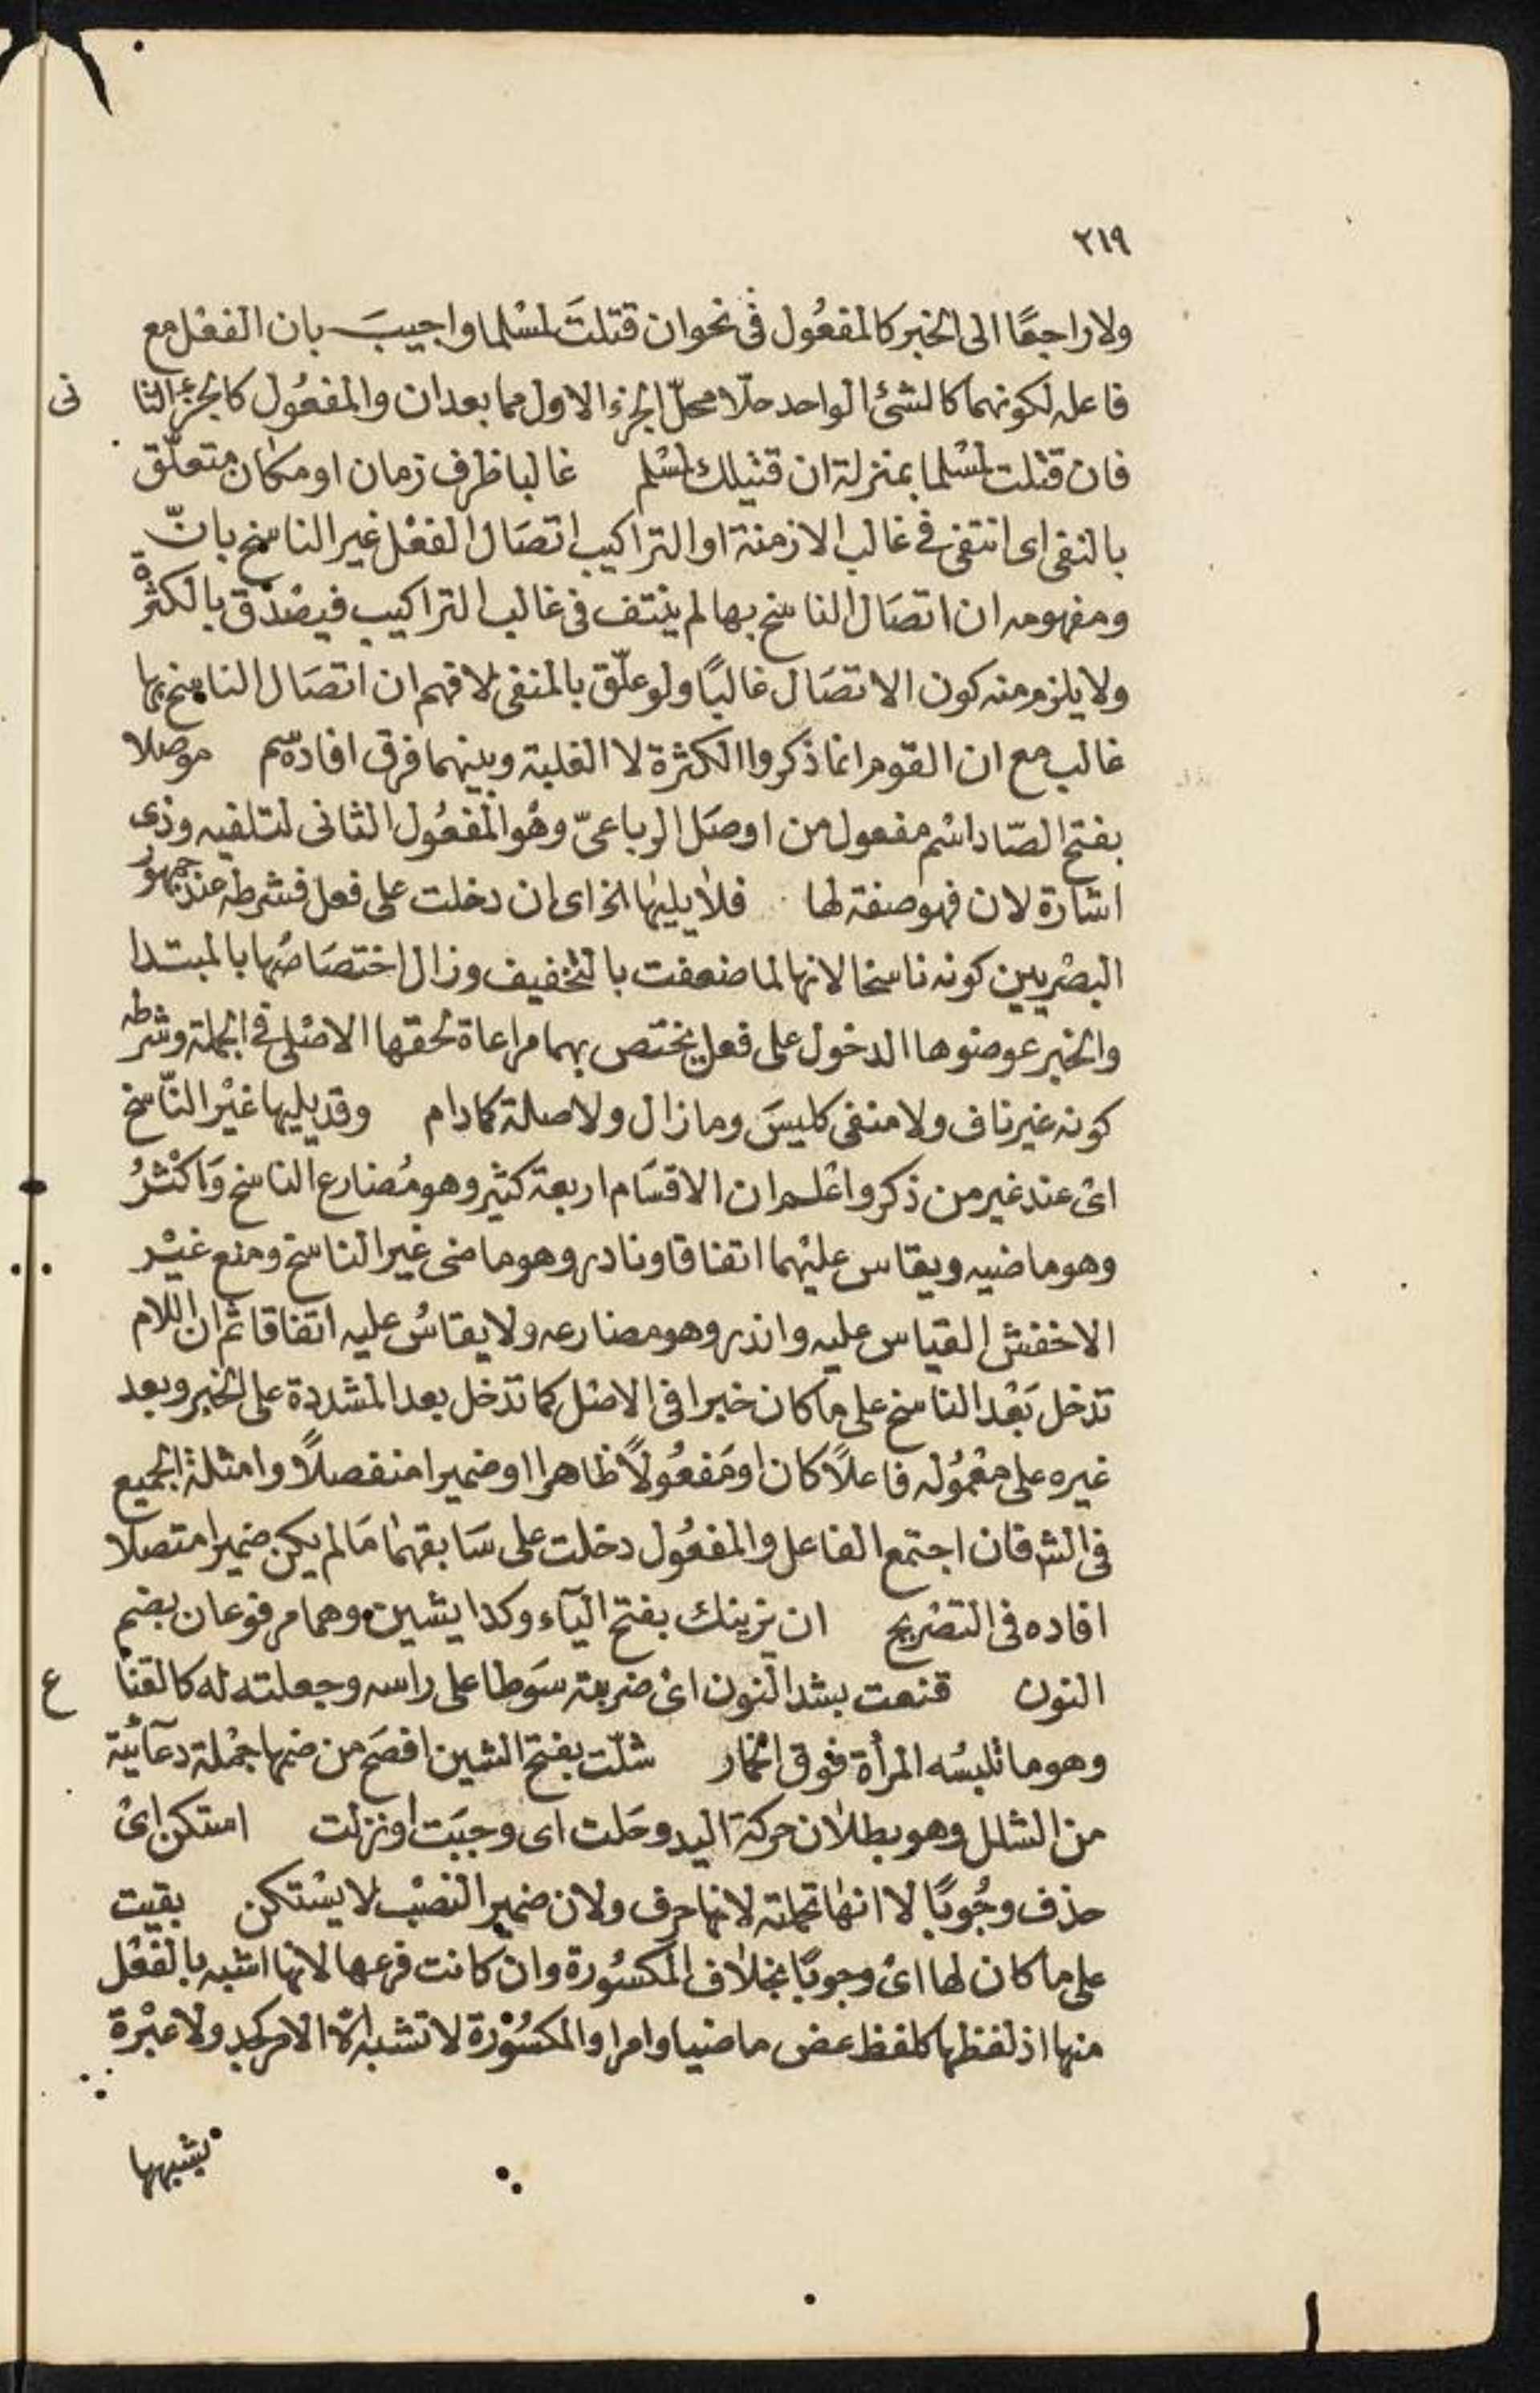 ٢١٩
ولا راجعًا الى الخبر كالمفعُول فى نحو ان قتلتَ لمسْلما واجيبَ بان الفعْل مع
فاعله لكونهما كالشئ الواحد حلّا محلّ الجزء الاول مما بعد ان والمفعُول كالجزء الثانى
فان قتلت لمسْلما بمنزلة ان قتيلك لمسْلم غالبا ظرف زمان او مكان متعلّق
بالنفى اى انتفى فى غالب الازمنة او التراكيب اتصَال الفعْل غير الناسخ بانّ
ومفهومه ان اتصَال الناسخ بها لم ينتف فى غالب التراكيب فيصْدق بالكثرة
ولا يلزم منه كون الاتصَال غالبًا ولو علّق بالمنفى لافهم ان اتصَال الناسخ بها
غالب مع ان القوم انما ذكروا الكثرة لا الغلبة وبينهما فرق افاده سم موصلا
بفتح الصّاد اسْم مفعول من اوصَل الرباعىّ وهُو المفعُول الثانى لتلفيه وذى
اشارة لان فهو صفة لها فلا يليها الخ اى ان دخلت على فعل فشرطه عند جمهور
البصْريين كونه ناسخا لانها لما ضعفت بالتخفيف وزال اختصَاصُها بالمبتدا
والخبر عوضوها الدخول على فعل يختص بهما مراعاة لحقها الاصْلى فى الجملة وشرطه
كونه غير ناف ولا منفى كليسَ وما زال ولا صلة كمادام وقد يليها غيْر النّاسخ
اىْ عند غير من ذكر واعْلم ان الاقسَام اربعة كثير وهو مُضارع الناسخ وَاكْثرُ
وهو ماضيه ويقاس عليْهما اتفاقا ونادر وهو ماضى غير الناسخ ومنع غيْر
الاخفش القياس عليه واندر وهو مضارعه ولا يقاسُ عليه اتفاقا ثم ان اللام
تدخل بَعْد الناسخ على ما كان خبرا فى الاصْل كما تدخل بعد المشددة على الخبر وبعد
غيره على معْمُوله فاعلاً كان او مَفعُولاً ظاهرا او ضميرا منفصلاً وامثلة الجميع
فى الشه فان اجتمع الفاعل والمفعُول دخلت على سَابقهما مَا لم يكن ضميرا متصلا
افاده فى التصْريح ان يزينك بفتح اليآء وكدا يشين وهما مرفوعان بضم
النون قنعت بشد النون اىْ ضربته سَوطا على راسه وجعلته له كالقناع
وهو ما تلبسُه المرأة فوق الخمار شلّت بفتح الشين افصَح من ضمها جمْلة دعآئية
من الشلل وهو بطلان حركة اليد وحَلت اى وجبَت او نزلت استكن اىْ
حذف وجُوبًا لا انها تحملته لانها حرف ولان ضمير النصْب لا يسْتكن بقيت
على ما كان لها اىْ وجوبًا بخلاف المكسُورة وان كانت فرعها لانها اشبه بالفعْل
منها اذ لفظها كلفظ عض ماضيا وامرا والمكسُورة لا تشبه الّا الامر كجد ولا عبْرة
بشبهها